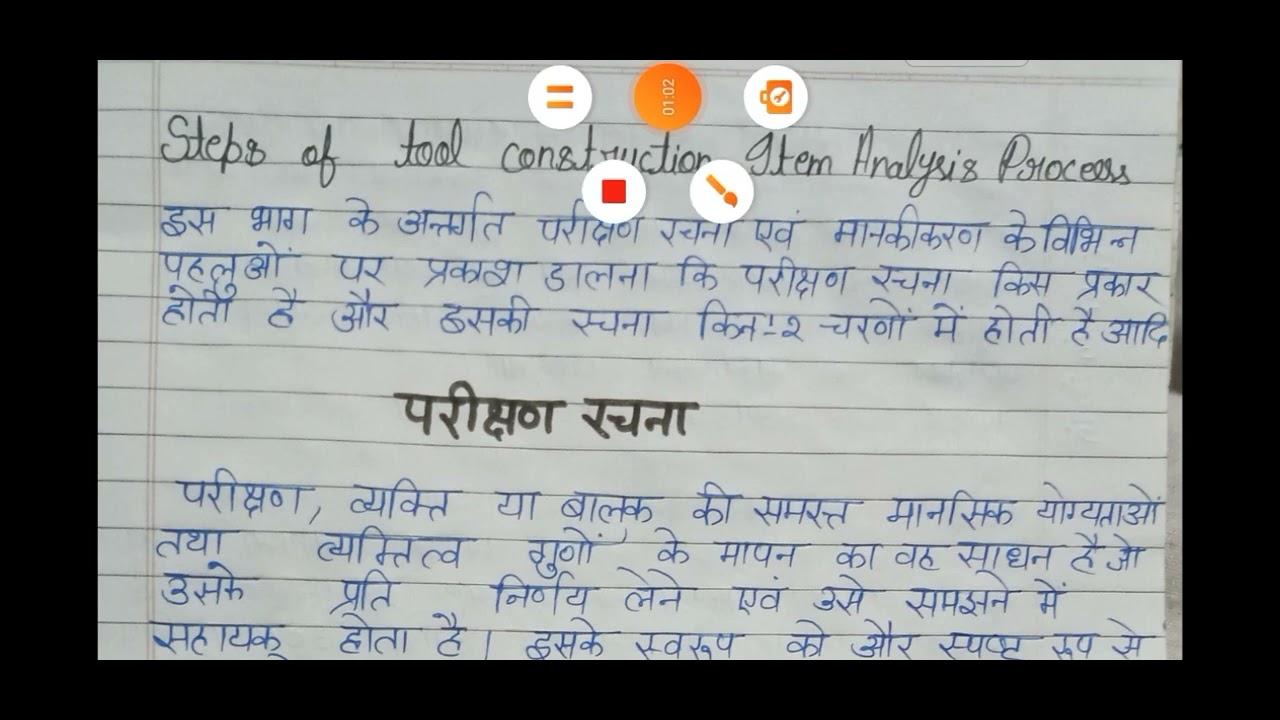 01:02
Steps of tool construction Item Analysis Process
इस भाग के अन्तर्गत परीक्षण रचना एवं मानकीकरण के विभिन्न
पहलुओं पर प्रकाश डालना कि परीक्षण रचना किस प्रकार
होती है और इसकी रचना किन-२ चरणों में होती है आदि
परीक्षण रचना
परीक्षण, व्यक्ति या बालक की समस्त मानसिक योग्यताओं
तथा व्यक्तित्व गुणों के मापन का वह साधन है जो
उसके प्रति निर्णय लेने एवं उसे समझने में
सहायक होता है। इसके स्वरूप को और स्पष्ट रूप से